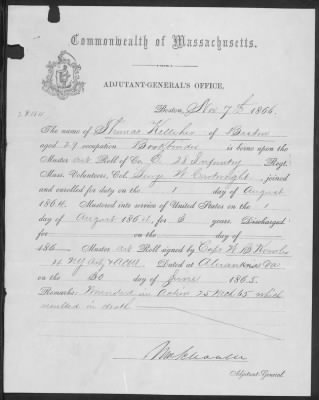 Commonwealth of Massachusetts.
ADJUTANT-GENERAL'S OFFICE.
Boston, Nov 7th 1866.
The name of Thomas Kelleher of Boston
aged 29 occupation Bookbinder is borne upon the
Muster out Roll of Co. C 28 Infantry Regt.
Mass. Volunteers, Col. George W. Cartwright, joined
and enrolled for duty on the 1 day of August
1864. Mustered into service of United States on the 1
day of August 1864, for 3 years. Discharged
for on the day of
186 — Muster out Roll signed by Capt W. B.
4 N.Y. Arty Dated at Alexandria Va
on the 30 day of June 1865.
Remarks: Wounded in Action 25 Mch 65 which
resulted in death
Adjutant-General.